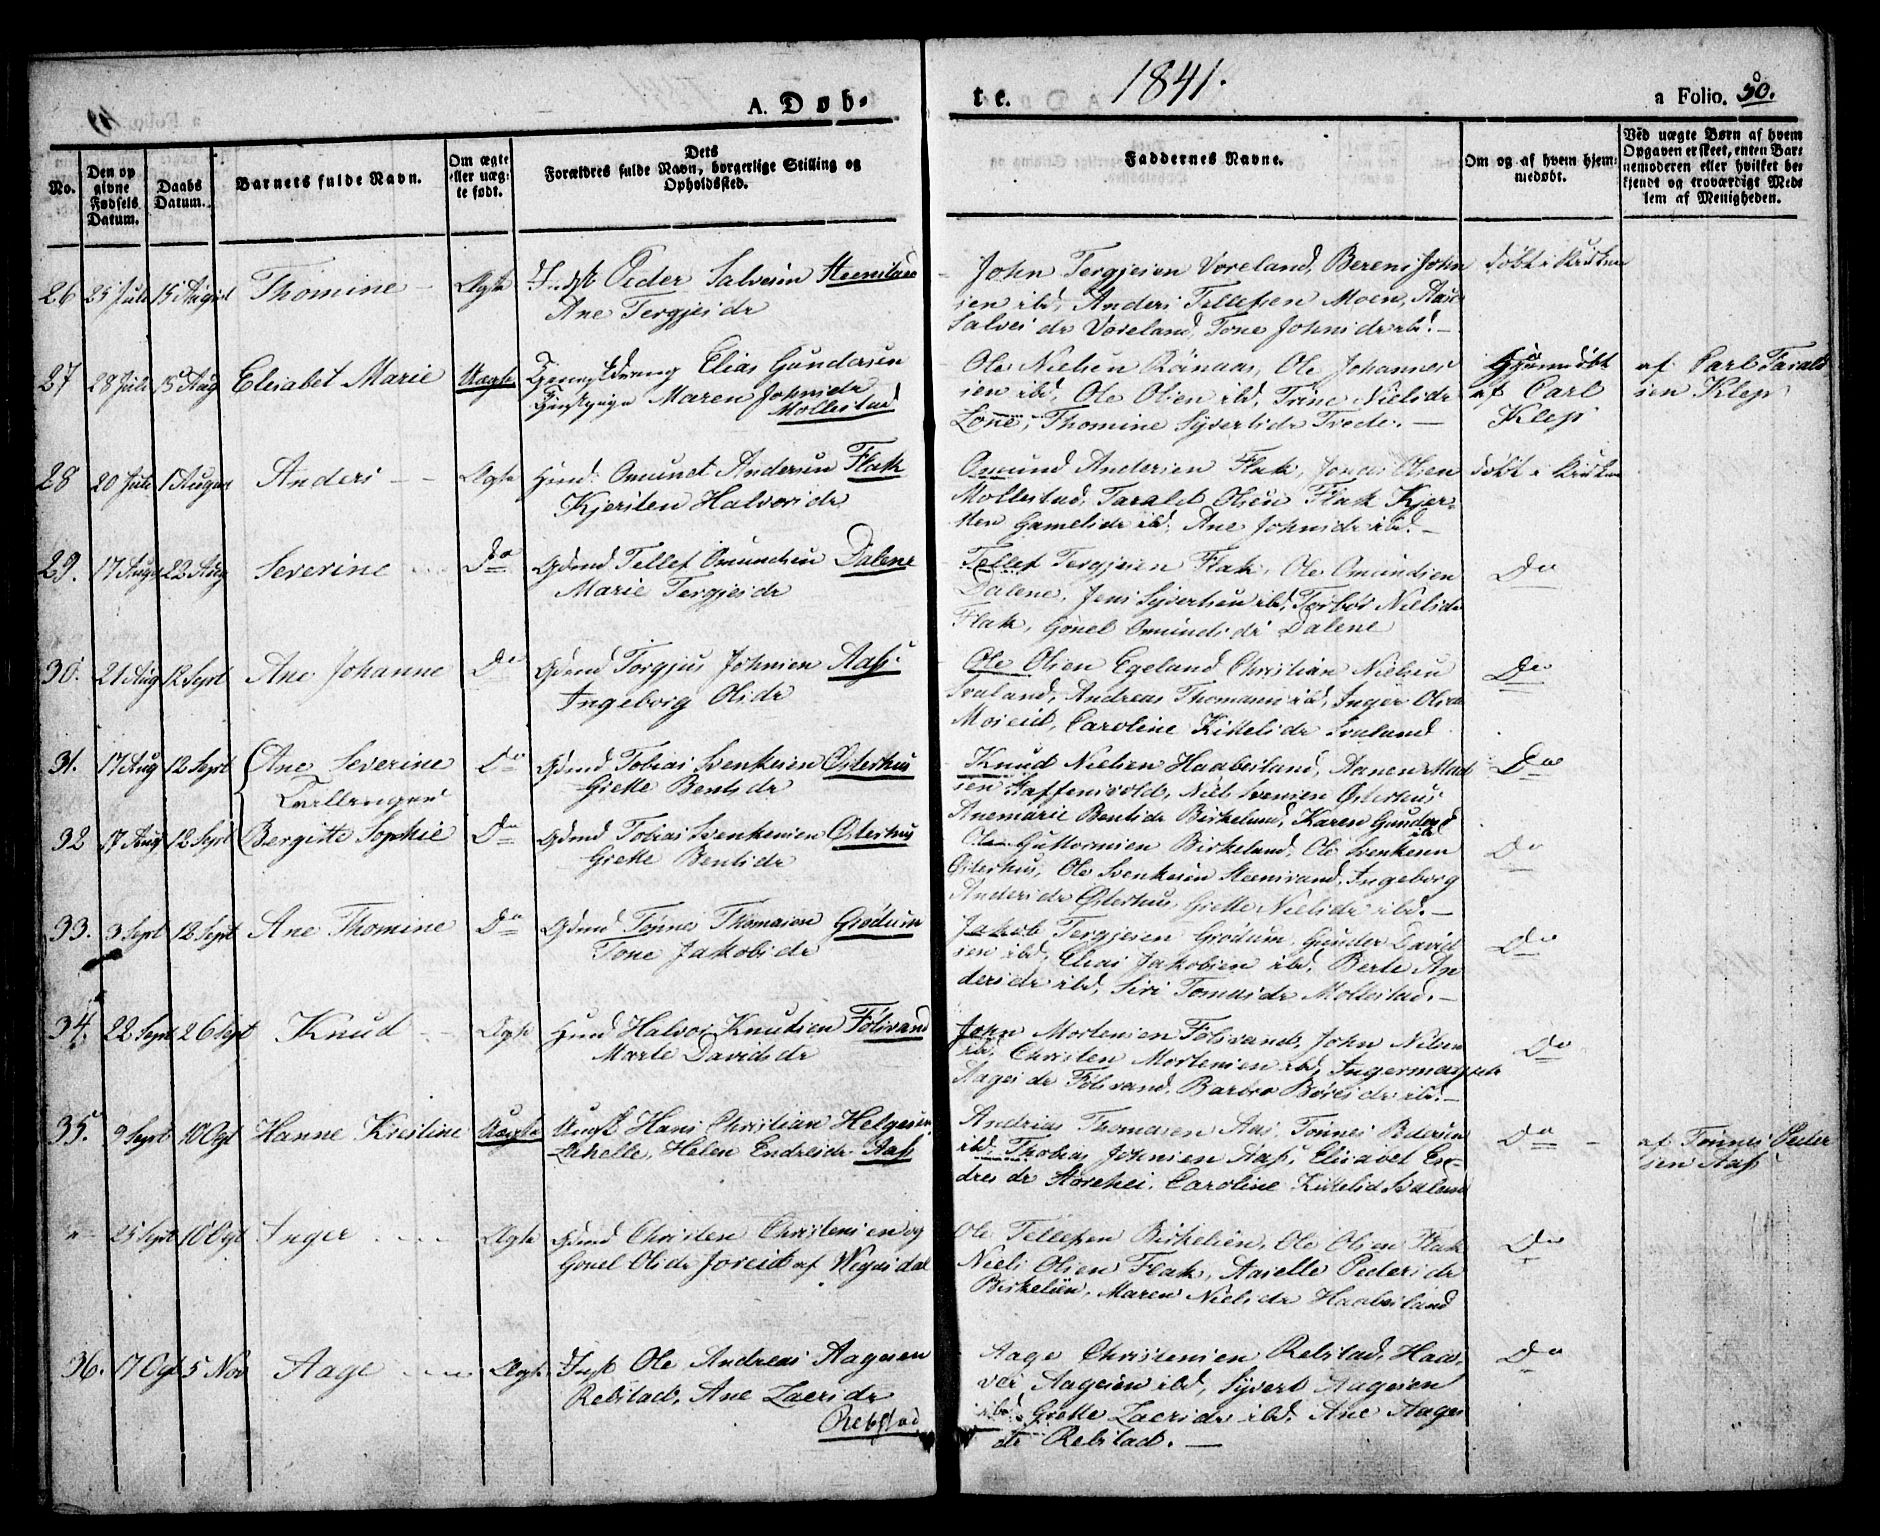 A. Døb-
te.
1841.
a Folio. 50.
No.
Den op
givne
Fødsels
Datum.
Daabs
Datum.
Barnets fulde Navn.
Om ægte
eller uæg-
te født.
Dets
Forældres fulde Navn, borgerlige Stilling og
Opholdssted.
Faddernes Navne.
Om og af hvem hjem-
medøbt.
Ved uægte Børn af hvem
Opgaven er skeet, enten Bar-
nemoderen eller hvilket be-
kjendt og troværdigt Med-
lem af Menigheden.
26 25 Juli 15 August Thomine Ægte Indst Peder Salvesen
Ane Tergjesdr
John Tergjesen Voreland, Berent John
sen ibd, Anders Tellefsen Moen, Aase
Salvesdr Voreland, Tone Johnsdr ibd. —
døbt i Kirken
27 28 Juli 15 Aug Elisabet Marie Uægte Elias Gundersen
Maren Johnsdr
Mollestad
Ole Nielsen Rønaas, Ole Johannes
sen ibd, Ole Olsen ibd, Trine Nielsdr
Lone, Thomine Syvertsdr Trede. —
Hjemmedøbt
af Carl
Klep
af Carl Tarald
sen Klep
28 20 Juli 1 August Anders Ægte Huusd: Omund Andersen Flak
Kjersten Halvorsdr
Omund Andersen Flak, Jonas Olsen
Mollestad, Harald Olsen Flak Kjer-
sten Gamelsdr ibd, Ane Johnsdr ibd. —
døbt i Kirken
29. 17 Aug 22 Aug Severine Do Gdmd Tellef Omundsen Dalene
Marie Tergjesdr
Tellef Tergjesen Flak, Ole Omundsen
Dalene, Jens Syvertsen ibd, Torbør Nielsdr
Flak, Gonel Omundsdr Dalene
Do
30. 21 Aug 12 Sept Ane Johanne Do Gdmd Torgjus Johnsen Aas
Ingeborg Olsdr
Ole Olsen Egeland, Christian Nielsen
Svaland, Andreas Thomassen ibd, Inger Olsdr
Moseid, Caroline Kittelsdr Svaland
Do
31. 17 Aug 12 Sept Ane Severine Do Gdmd Tobias Svenkesen Østerhus
Tvillinger Grette Bentsdr
Knud Nielsen Haabesland, Aanen Mad
sen Staffensvold, Niels Svensen Østerhus
Anemarie Bentsdr Birkeland, Karen Gundersd
ibd
Do
32 17 Aug 12 Sept Bergitte Sophie Do Gdmd Tobias Svenkesen Østerhus
Grette Bentsdr
Ole Guttormsen Birkeland, Ole Svenkesen
Østerhus, Ole Svenkesen Steensvand, Ingeborg
Andersdr Østerhus, Grette Nielsdr ibd. —
Do
33. 3 Sept 12 Sept Ane Thomine Do Gdmd Tønnes Thomasen Grødum
Tone Jakobsdr
Jakob Tergjesen Grødum, Gunder David
sen ibd, Elias Jakobsen ibd, Berte An
dersdr ibd, Siri Tomasdr Mollestad. —
Do
34. 22 Sept 26 Sept Knud Ægte Huusd Halvor Knudsen Følsvand
Marte Davidsdr
John Mortensen Følsvand, John Nilsen
ibd, Christen Mortensen ibd,
Aagesdr Følsvand, Barbro Børesdr ibd. —
Do
35. 9 Sept 10 Oct Hanne Kristine Uægte Hans Christian Helgesen
Helene Endresdr Aas
Andrias Thomasen Aas, Tønnes Pedersen
ibd, Thobias Johnsen Aas, Elisabet En-
dresdr Storehei, Caroline Kittelsd Svaland
Do
af Tønnes Peder
sen Aas
25 Sept 10 Oct Inger Ægte Gdmd Christen Christensen og
Gonel Olsdr Joreid af Wegusdal
Ole Tellefsen Birkelien, Ole Olsen Flak
Niels Olsen Flak, Aaselle Pedersdr
Birkelien, Maren Nielsdr Haabesland
Do
36. 17 Oct 5 Nov Aage Ægte Indst Ole Andreas Aagesen
Rebstad, Ane Zacrisdr
Rebstad
Aage Christensen Rebstad, Haa-
ver Aagesen ibd, Syvert Aagesen
ibd, Grette Zacrisdr ibd, Ane Aages
dr Rebstad. —
Do